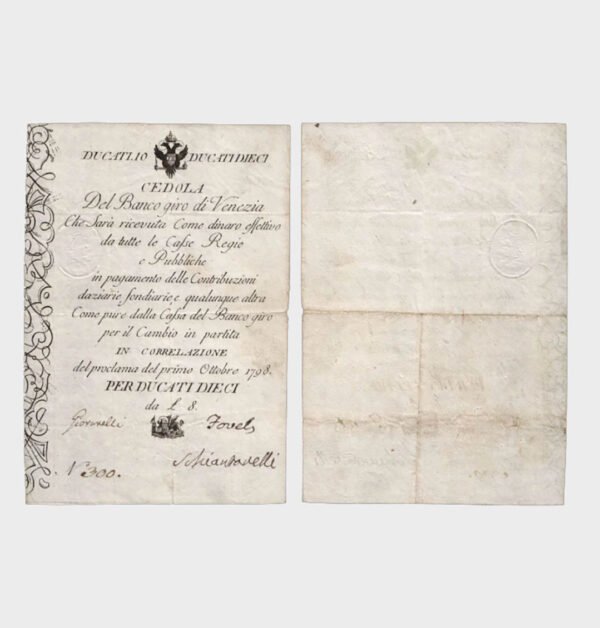 DUCATI 10 DUCATI DIECI
CEDOLA
Del Banco giro di Venezia
Che Sarà ricevuta Come dinaro effettivo
da tutte le Casse Regie
e Pubbliche
in pagamento delle Contribuzioni
daziarie, fondiarie, e qualunque altra
Come pure dalla Cassa del Banco giro
per il Cambio in partita
IN CORRELAZIONE
del proclama del primo Ottobre 1798.
PER DUCATI DIECI
da £ 8.
Giovanelli Fovel
Schiantarelli
N.300.